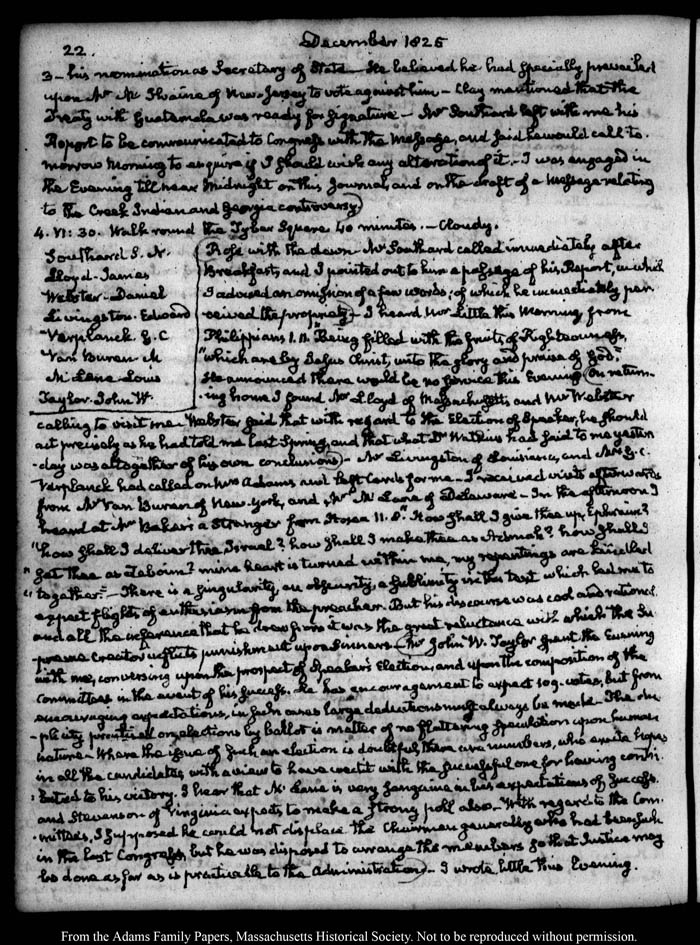 22.
December 1825
3 – his nomination as Secretary of State – He believed he had specially prevailed
upon Mr McIlvaine of New-Jersey to vote against him – Clay mentioned that the
Treaty with Guatemala was ready for signature – Mr Southard left with me his
Report to be communicated to Congress with the Message, and said he would call to-
morrow Morning to enquire if I should wish any alteration of it – I was engaged in
the Evening till near Midnight on this Journal, and on the draft of a Message relating
to the Creek Indian and Georgia controversy
4. VI: 30. Walk round the Tyber Square 40 minutes. – Cloudy.
Southard S. N.
Lloyd – James
Webster – Daniel
Livingston. Edward
Verplanck G. C
Van Buren M
McLane Louis
Taylor. John W.
Rose with the dawn – Mr Southard called immediately after
Breakfast, and I pointed out to him a passage of his Report, in which
I advised an omission of a few words; of which he immediately per-
ceived the propriety – I heard Mr Little this Morning from
Philippians 1. 11. "Being filled with the fruits of Righteousness,
"which are by Jesus Christ, unto the glory and praise of God."
He announced there would be no service this Evening. On return-
-ing home I found Mr Lloyd of Massachusetts and Mr Webster
calling to visit me – Webster said that with regard to the Election of Speaker, he should
act precisely as he had told me last Spring, and that what Dr Watkins had said to me yester-
-day was altogether of his own conclusions – Mr Livingston of Louisiana, and Mr G. C.
Verplanck had called on Mrs Adams and left Cards for me – I received visits afterwards
from Mr Van Buren of New-York, and Mr McLane of Delaware – In the afternoon I
heard at Mr Baker's a Stranger from Hosea 11. 8. "How shall I give thee up, Ephraim?
"how shall I deliver thee, Israel? how shall I make thee as Admah? how shall I
"set thee as Zeboim? mine heart is turned within me, my repentings are kindled
"together." – There is a singularity, an obscurity, a sublimity in this text which led me to
expect flights of enthusiasm from the preacher. But his discourse was cool and rational
and all the inference that he drew from it was the great reluctance with which the Su-
preme Creator inflicts punishment upon Sinners – Mr John W. Taylor spent the Evening
with me, conversing upon the prospect of Speaker's Election, and upon the composition of the
Committees in the event of his success. He has encouragement to expect 109. votes, but from
encouraging expectations, in such cases large deductions must always be made – The du-
-plicity practised on elections by ballot is matter of no flattering speculation upon human
nature – Where the issue of such an election is doubtful, there are numbers, who excite hopes
in all the candidates, with a view to have credit with the successful one for having contri-
-buted to his victory. I hear that McLane is very sanguine in his expectations of success.
and Stevenson of Virginia expects to make a strong poll also – With regard to the Com-
-mittees, I supposed he could not displace the Chairmen generally who had been such
in the last Congress, but he was disposed to arrange the members so that Justice may
be done as far as is practicable to the Administration – I wrote little this Evening.
From the Adams Family Papers, Massachusetts Historical Society. Not to be reproduced without permission.